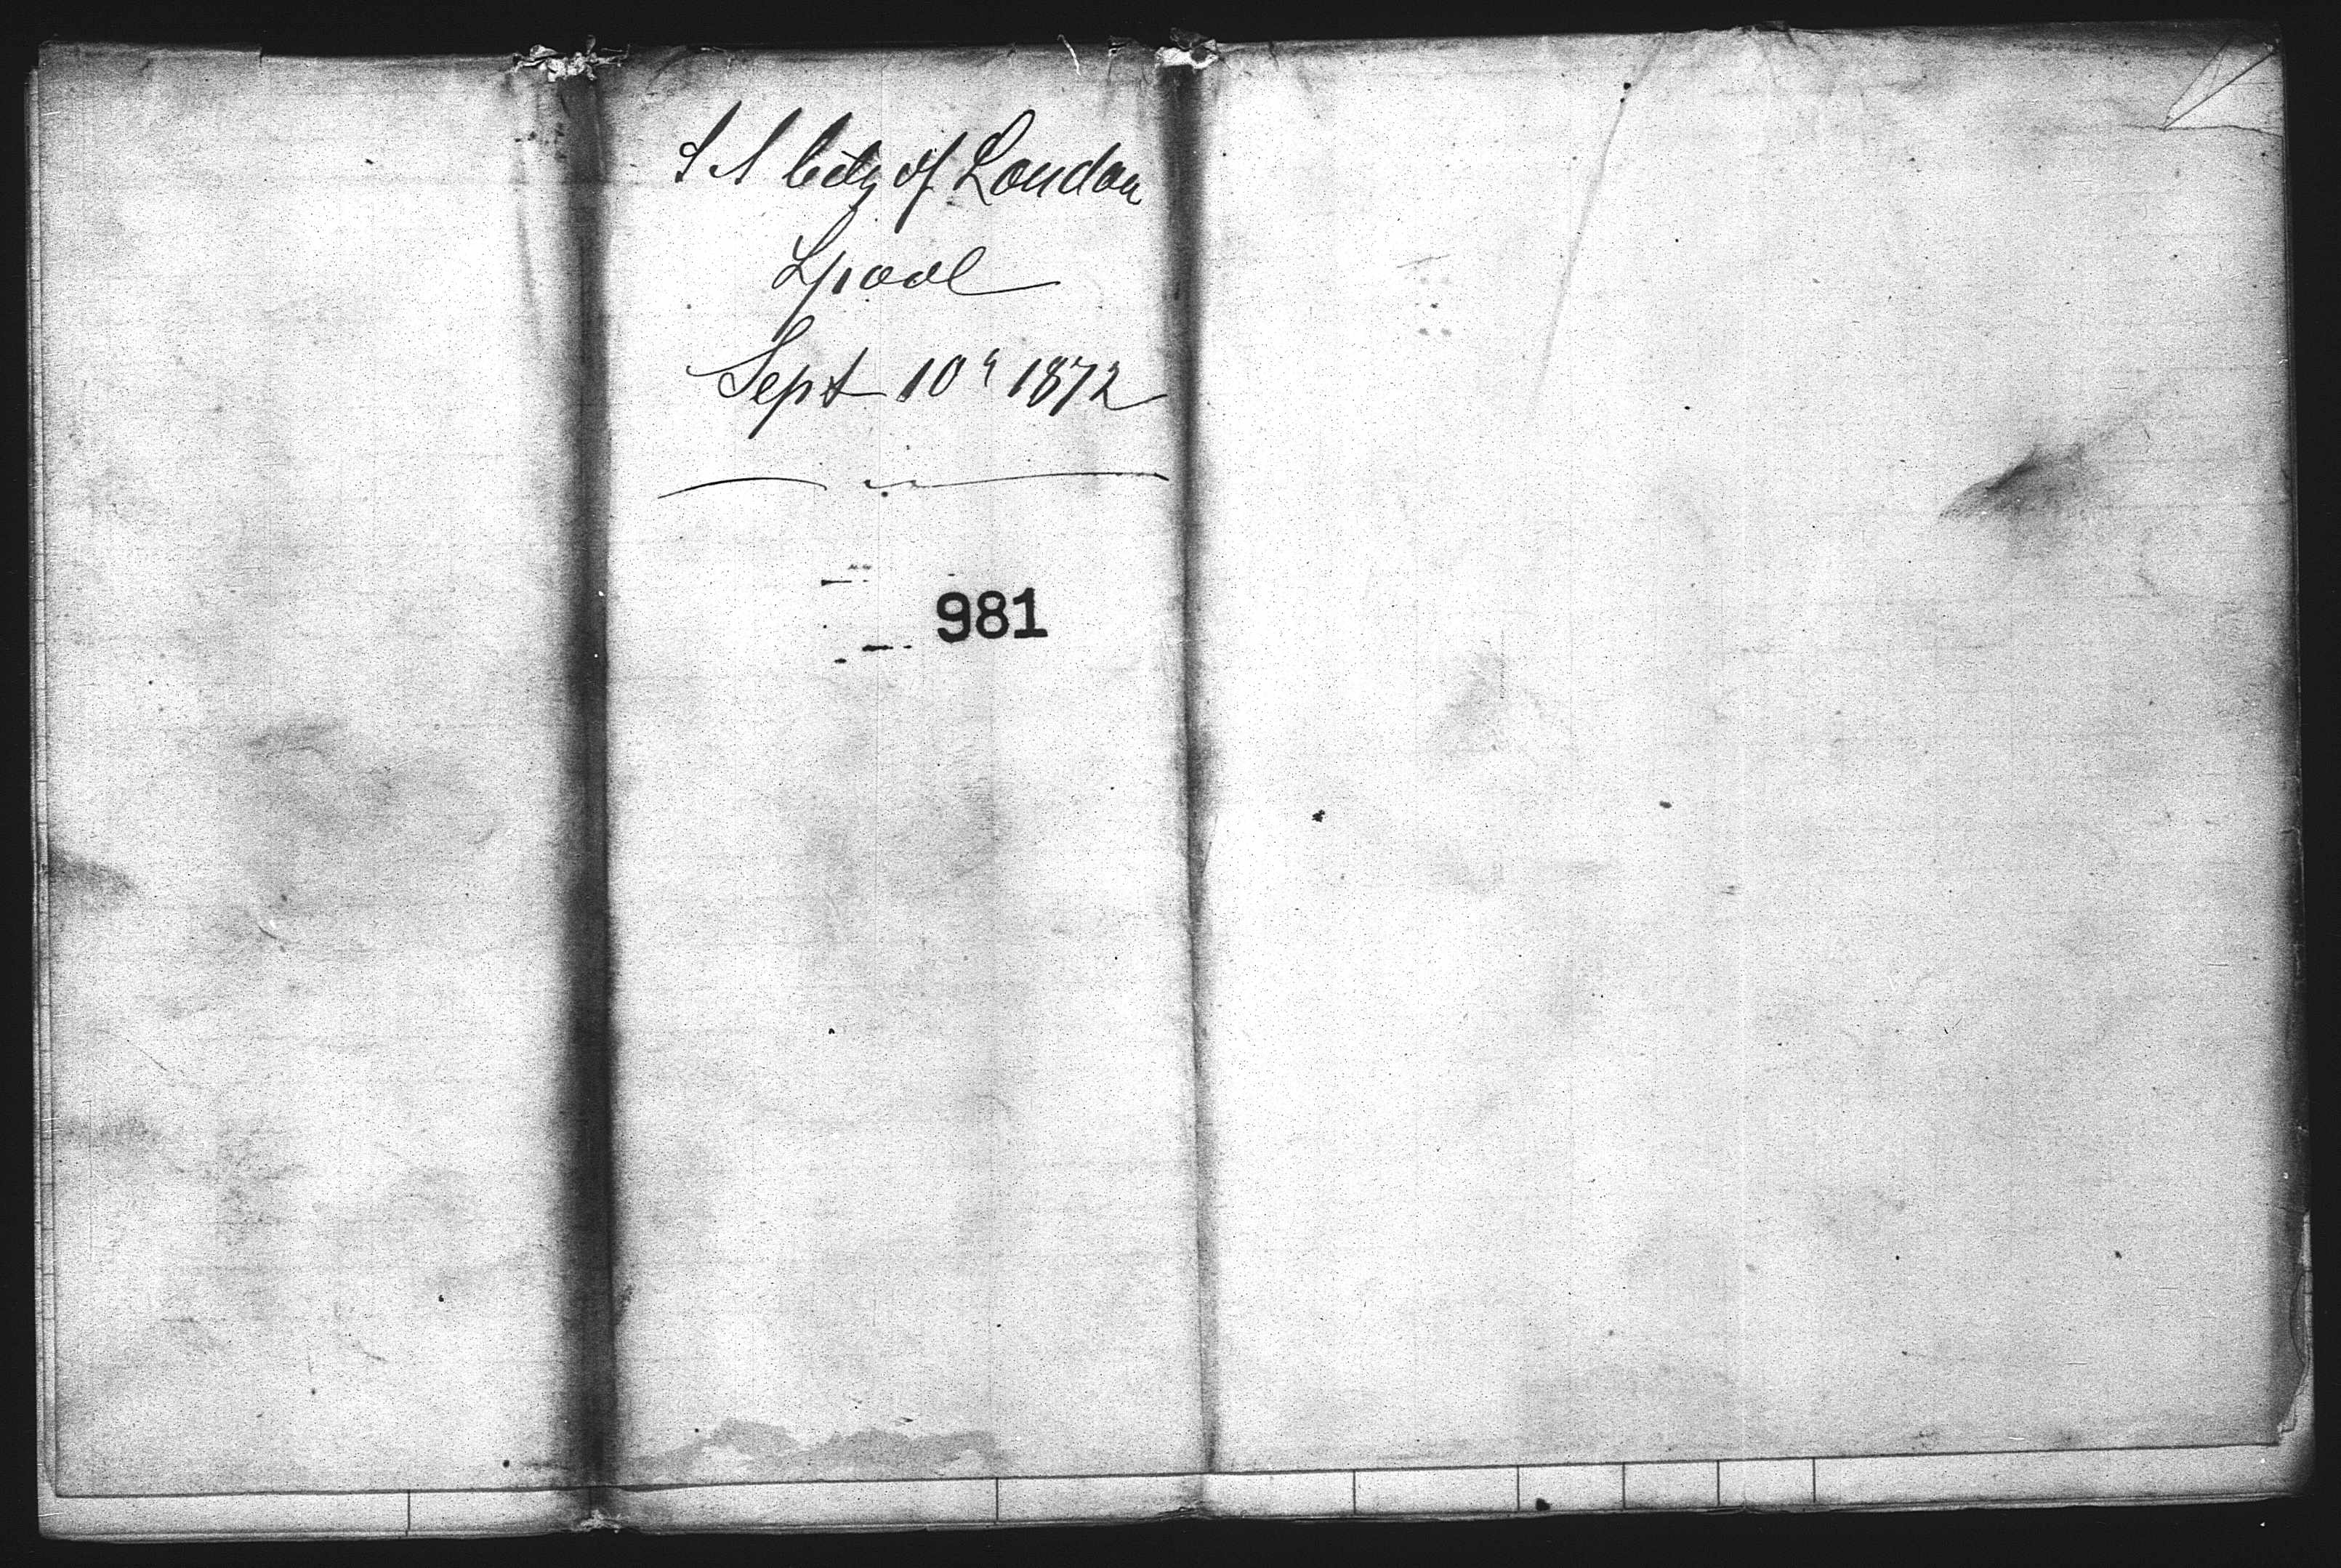 S S City of London
Lpool
Sept 10th 1872
981